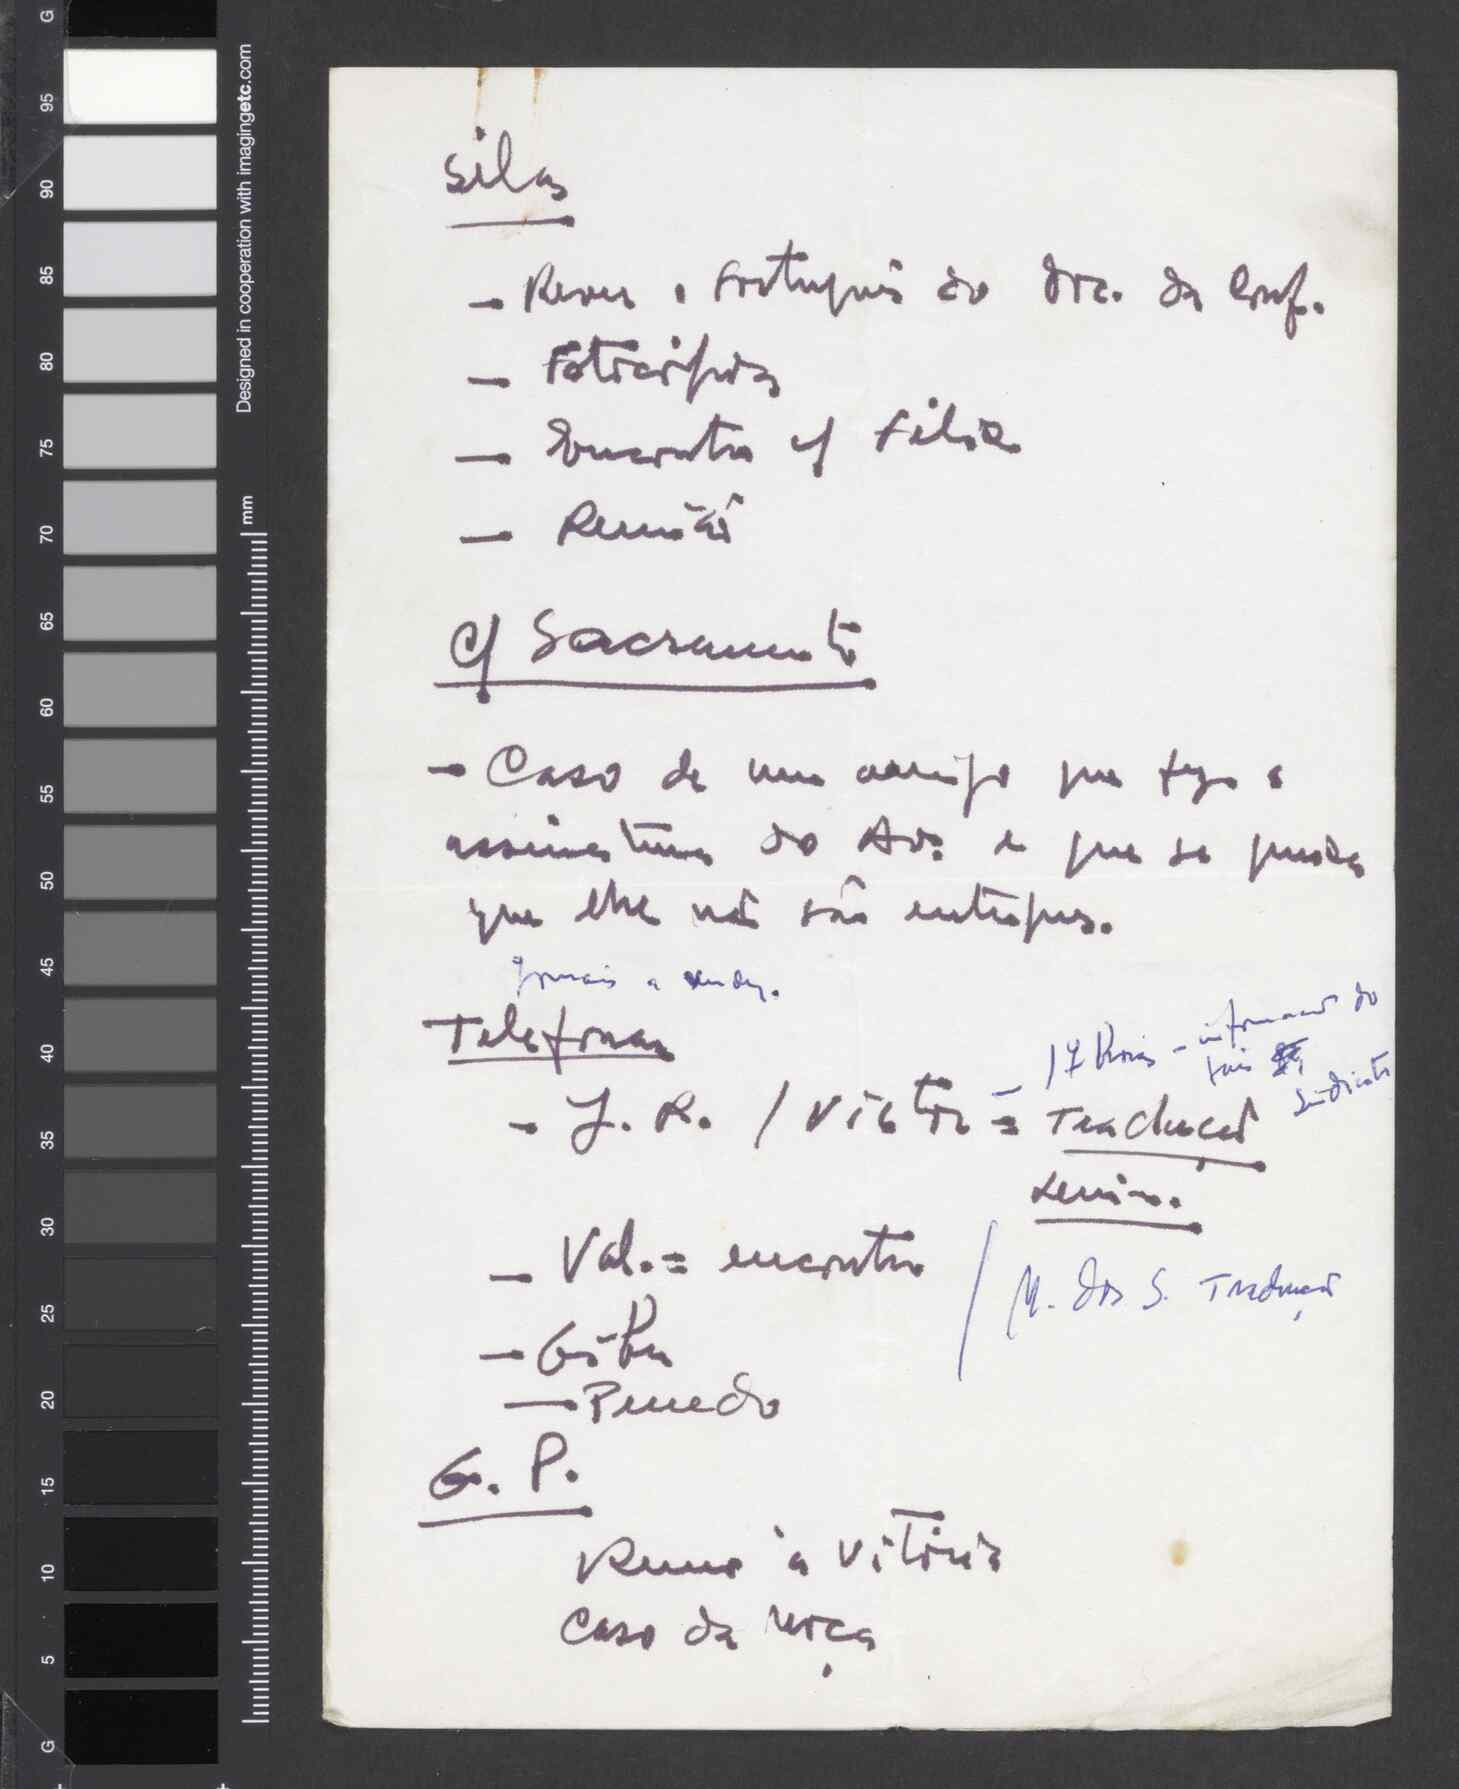 Silas
- Rever o português do doc. da Conf.
- Fotocópias
- Encontro c/ Filia
- Reunião
c/ Sacramento
- Caso de um amigo que fez a
assinatura do Av. e que se queixa
que lhe não são entregues.
Jornais a vender.
Telefonar
17 horas - informação do
Sindicato
- J. R. / Victor = Tradução
Lenine.
- Val. = encontro
/ M. dos S. Tradução
- Penedo
G. P.
Rumo à Vitória
Caso da moça
G 95 90 85 80 75 70 65 60 55 50 45 40 35 30 25 20 15 10 5 G
Designed in cooperation with imagingetc.com
mm